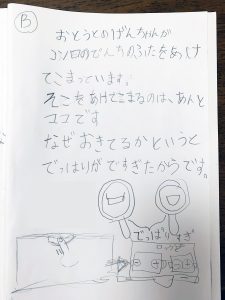 B
おとうとのげんちゃんが
コンロのでんちのふたをあっけ
てこまっています。
そこをあけてこまるのは、あんと
ココです
なぜおきてるかというと
でっぱりがですぎたからです。
でっぱりすぎ
ロック